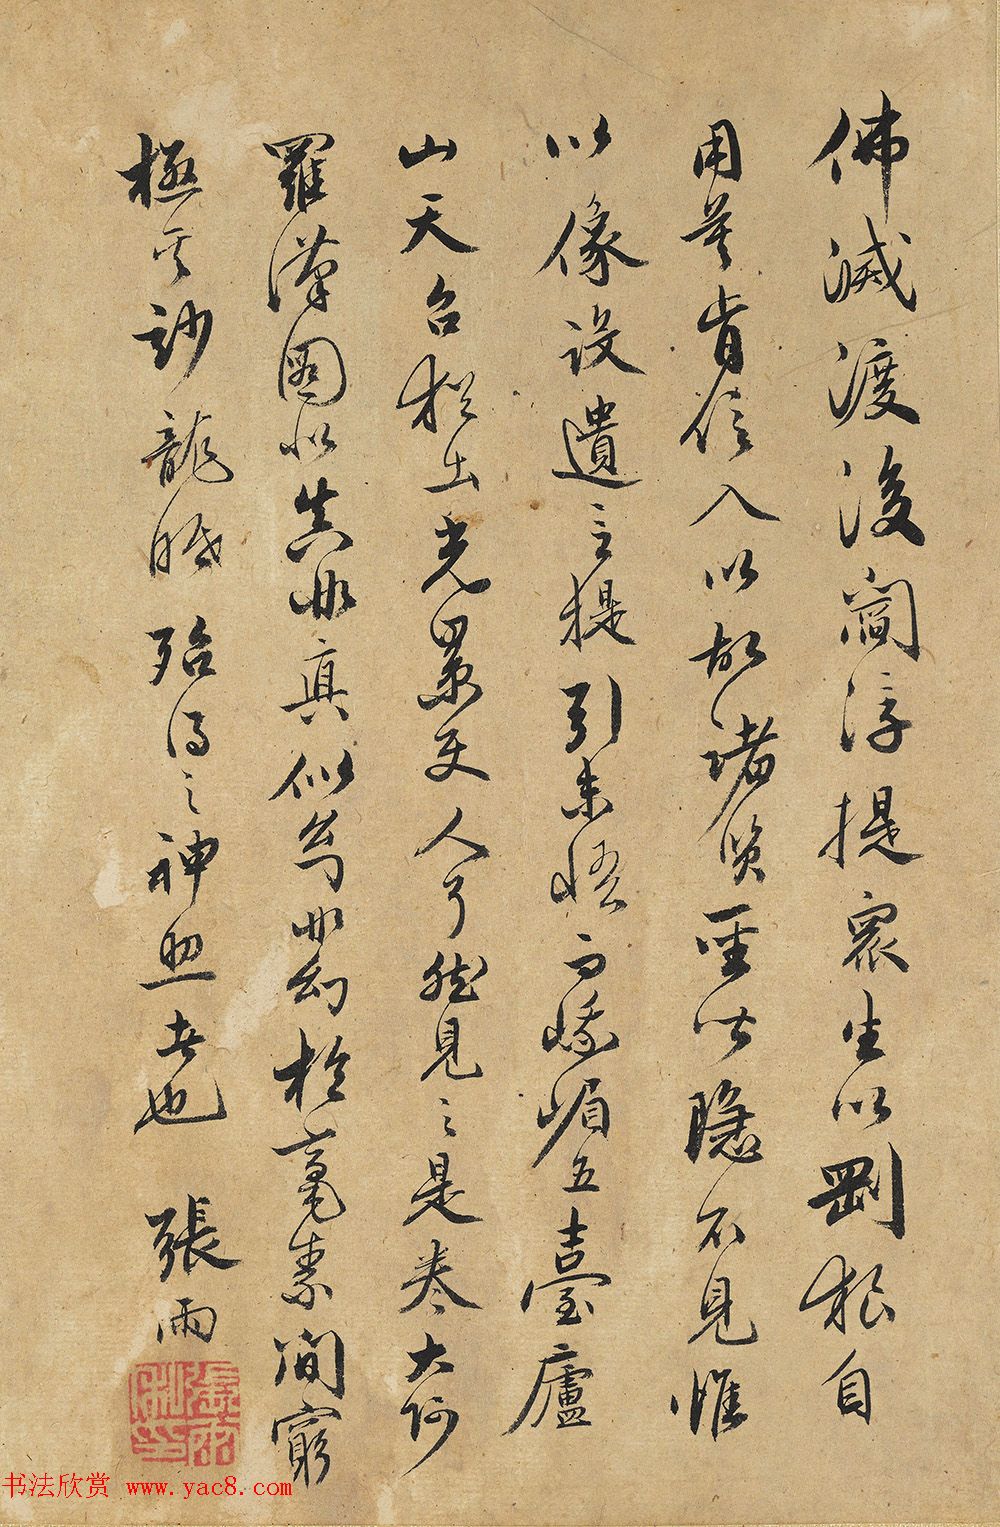 佛滅渡後閻浮提眾生以剛根自
用莫肯信入以故諸賢聖皆隱不見惟
以像設遺言提引未悟而峨嵋五臺廬
山天台出光景人了然見之是卷大阿
羅漢圖似真非真似幻非幻於毫素間窮
極其妙龍眠殆得之神者也 張雨
书法欣赏 www.yac8.com